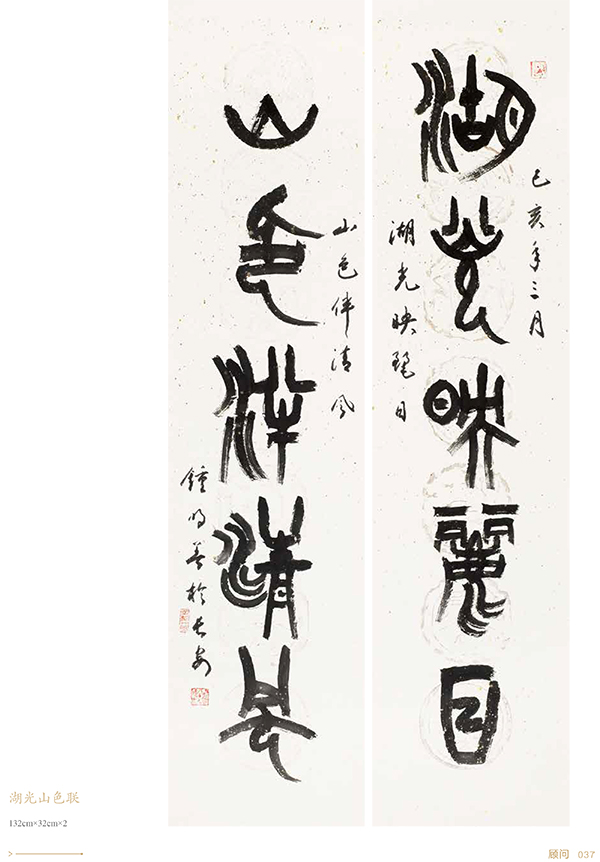 己亥年三月
湖光映麗日
湖光映麗日
山色伴清風
山色伴清風
鍾明善於長安
湖光山色联
132cm×32cm×2
顾问 037